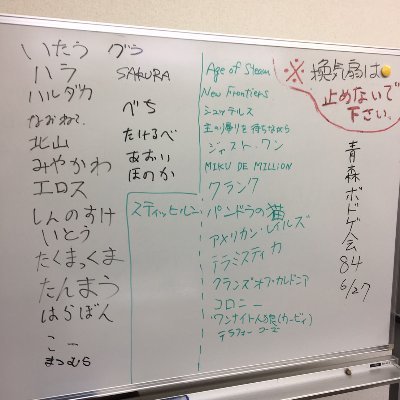 いたう グラ
ハラ SAKURA
ハルダカ
なおねこ べち
北山 たけるべ
みやかわ あおい
エロス ほのか
しんのすけ
いとう
たくまっくま
たんまう
はらぼん
こー
まつむら
Age of Steam
New Frontiers
シュッテルス
主の帰りを待ちながら
ジャスト・ワン
MIKU DE MILLION
クランク
スティッヒルン
パンドラの猫
アメリカン・レイルズ
テラミスティカ
クランズオブ・カレドニア
コロニー
ワンナイト人狼(カービィ)
テラフォーマーズ
※換気扇は
止めないで
下さい。
青森ボドゲ会84
6/27